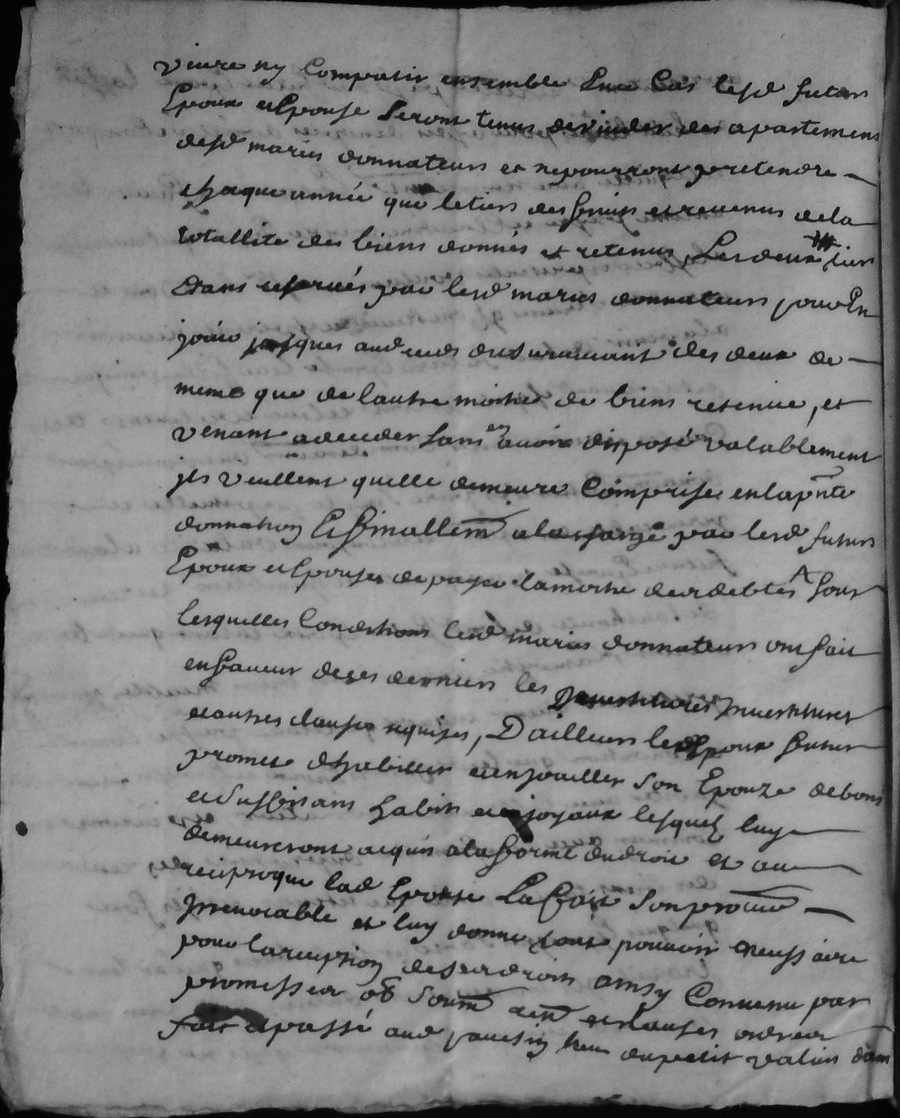 vivre ny compatir ensemble Audit Cas lesd futurs
Epoux et Epouse seront tenus de vuider des apartemens
desd mariés donnateurs et ne pourront pretendre
chaque année que le tiers des fruits et revenus de la
totallité des biens donnés et retenus, Les deux tiers
étans reservés par lesd mariés donnateurs pour En
jouir jusques au deces du survivant des deux de
meme que de lautre moitié de biens retenue, et
venant a deceder sans en avoir disposé valablement
jls veullent quelle demeure Comprise en la pnte
donnation Et finallemt a la charge par lesd futurs
Epoux et Epouse de payer la moitié des debtes sous
lesquelles Conditions lesd mariés donnateurs ont fait
en faveur de ces derniers les Devestitures Investitures
et autres clauses requises, D'ailleurs led Epoux futur
promet d'habiller et enjoailler son Epouze de bons
et suffisans habits et joyaux lesquels luy
demeureront acquis a la forme du droit et au
reciproque lad Epouse Le fait son procureur
Irrevocable et luy donne tout pouvoir necessaire
pour la reception de ses droits ainsy Convenu par
promesses ob soum et clauses
fait et passé aud lieu du petit valin dans